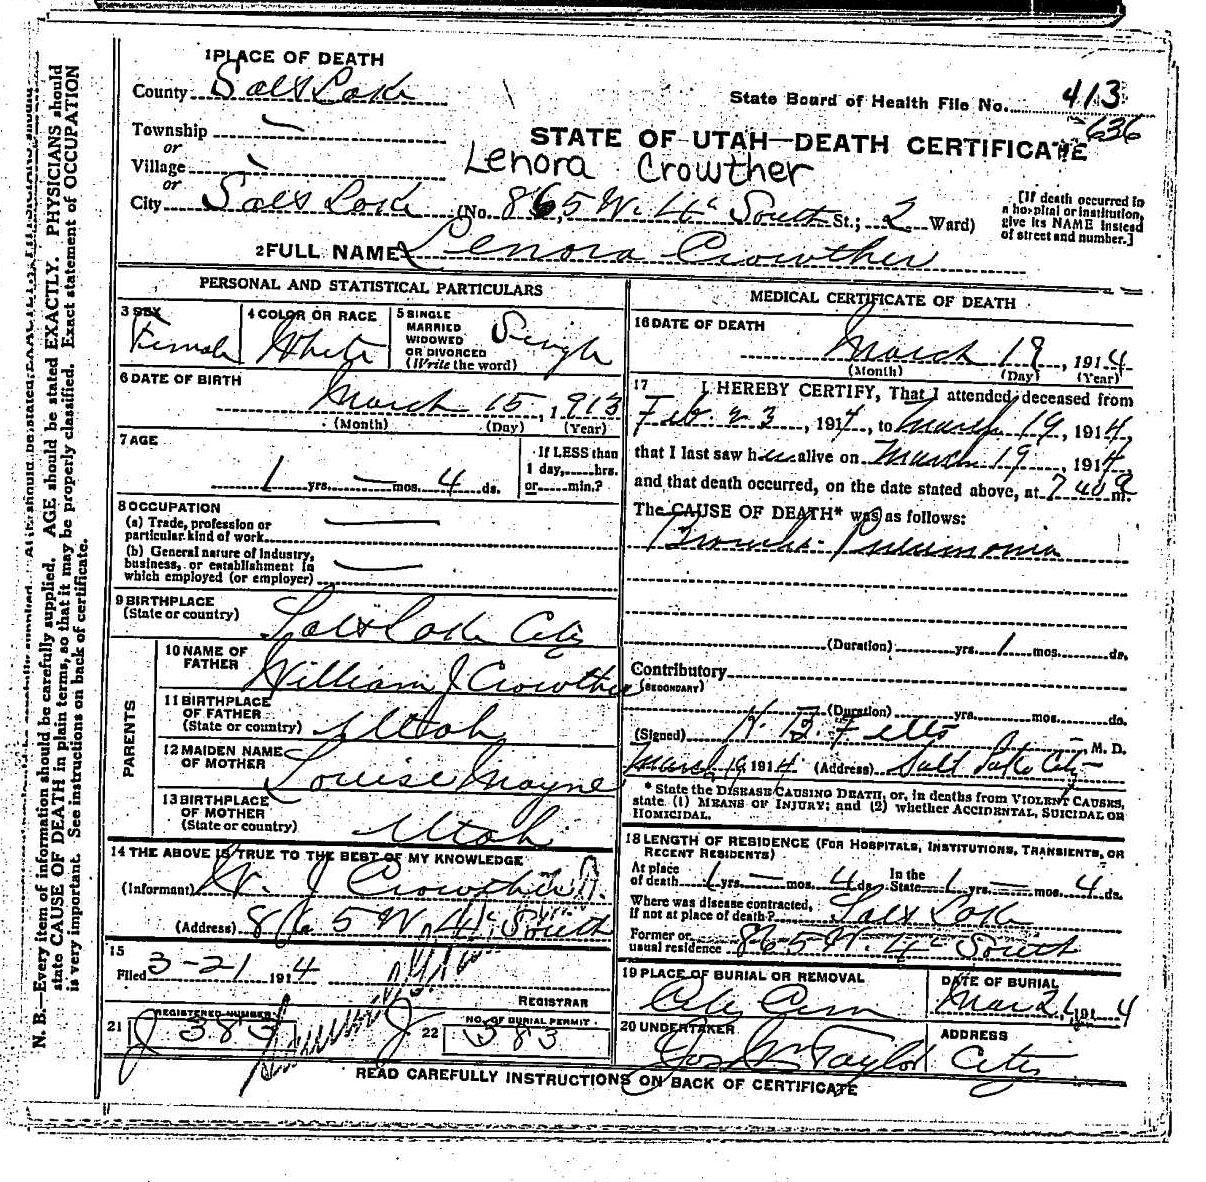 1 PLACE OF DEATH
County Salt Lake
State Board of Health File No. 413
636
Township —
or
STATE OF UTAH—DEATH CERTIFICATE
Village
or
Lenora Crowther
City Salt Lake (No. 865 W. 4th South St.; 2 Ward)
[If death occurred in a hospital or institution, give its NAME instead of street and number.]
2 FULL NAME Lenora Crowther
PERSONAL AND STATISTICAL PARTICULARS
3 SEX Female
4 COLOR OR RACE White
5 SINGLE MARRIED WIDOWED OR DIVORCED (Write the word) Single
6 DATE OF BIRTH
March 15, 1913
(Month) (Day) (Year)
7 AGE
1 yrs. — mos. 4 ds.
If LESS than 1 day, hrs. or min.?
8 OCCUPATION
(a) Trade, profession or particular kind of work —
(b) General nature of Industry, business, or establishment in which employed (or employer) —
9 BIRTHPLACE
(State or country) Salt Lake City
PARENTS
10 NAME OF FATHER William J Crowther
11 BIRTHPLACE OF FATHER (State or country) Utah
12 MAIDEN NAME OF MOTHER Louise Mayne
13 BIRTHPLACE OF MOTHER (State or country) Utah
14 THE ABOVE IS TRUE TO THE BEST OF MY KNOWLEDGE
(Informant) W. J Crowther
(Address) 865 W 4th South
15
Filed 3-21 1914
REGISTRAR
21 REGISTERED NUMBER 383
22 NO. OF BURIAL PERMIT 383
MEDICAL CERTIFICATE OF DEATH
16 DATE OF DEATH
March 19, 1914
(Month) (Day) (Year)
17 I HEREBY CERTIFY, That I attended deceased from
Feb. 23, 1914, to March 19, 1914,
that I last saw her alive on March 19, 1914,
and that death occurred, on the date stated above, at 7 40 P m.
The CAUSE OF DEATH* was as follows:
Broncho-Pneumonia
(Duration) yrs. 1 mos. ds.
Contributory
(SECONDARY)
(Duration) yrs. mos. ds.
(Signed) Felts M. D.
March 19, 1914 (Address) Salt Lake City
* State the DISEASE CAUSING DEATH, or, in deaths from VIOLENT CAUSES, state (1) MEANS OF INJURY; and (2) whether ACCIDENTAL, SUICIDAL OR HOMICIDAL.
18 LENGTH OF RESIDENCE (FOR HOSPITALS, INSTITUTIONS, TRANSIENTS, OR RECENT RESIDENTS)
At place of death 1 yrs. — mos. 4 ds. In the State 1 yrs. — mos. 4 ds.
Where was disease contracted, if not at place of death? Salt Lake
Former or usual residence 865 W 4th South
19 PLACE OF BURIAL OR REMOVAL City Cem
DATE OF BURIAL Mar 21, 1914
20 UNDERTAKER Jos Wm Taylor
ADDRESS City
READ CAREFULLY INSTRUCTIONS ON BACK OF CERTIFICATE
N. B.—Every item of information should be carefully supplied. AGE should be stated EXACTLY. PHYSICIANS should
state CAUSE OF DEATH in plain terms, so that it may be properly classified. Exact statement of OCCUPATION
is very important. See instructions on back of certificate.